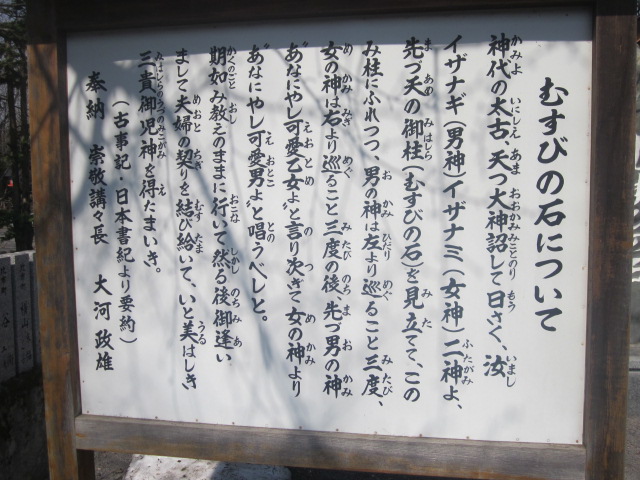 むすびの石について
神代の太古、天つ大神詔して曰さく、汝
イザナギ（男神）イザナミ（女神）二神よ、
先づ天の御柱（むすびの石）を見立てて、この
み柱にふれつつ、男の神は左より巡ること三度、
女の神は右より巡ること三度の後、先づ男の神
あなにやし可愛乙女よと言り次ぎて女の神より
あなにやし可愛男よと唱うべしと。
期如み教えのままに行いて然る後御逢い
まして夫婦の契りを結び給いて、いと美はしき
三貴御児神を得たまいき。
（古事記・日本書紀より要約）
奉納 崇敬講々長 大河政雄